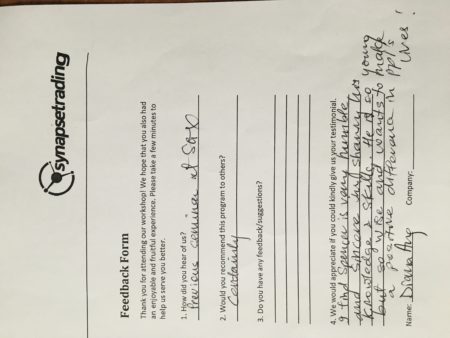 synapsetrading
Feedback Form
Thank you for attending our workshop! We hope that you also had
an enjoyable and fruitful experience. Please take a few minutes to
help us serve you better.
1. How did you hear of us?
Previous seminar at SGX
2. Would you recommend this program to others?
Certainly
3. Do you have any feedback/suggestions?
4. We would appreciate if you could kindly give us your testimonial.
I find Spencer is very humble
and sincere in sharing his
knowledge & skills. He is so young
but so wise and wants to make
a positive difference in ppl's
lives!
Name: Diana Ang Company: